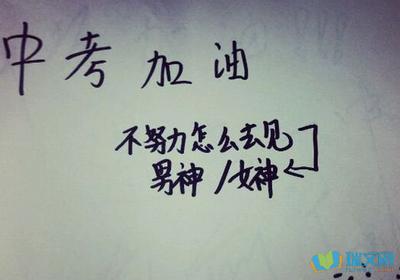 中考加油
不努力怎么去见
男神/女神
瑞文网